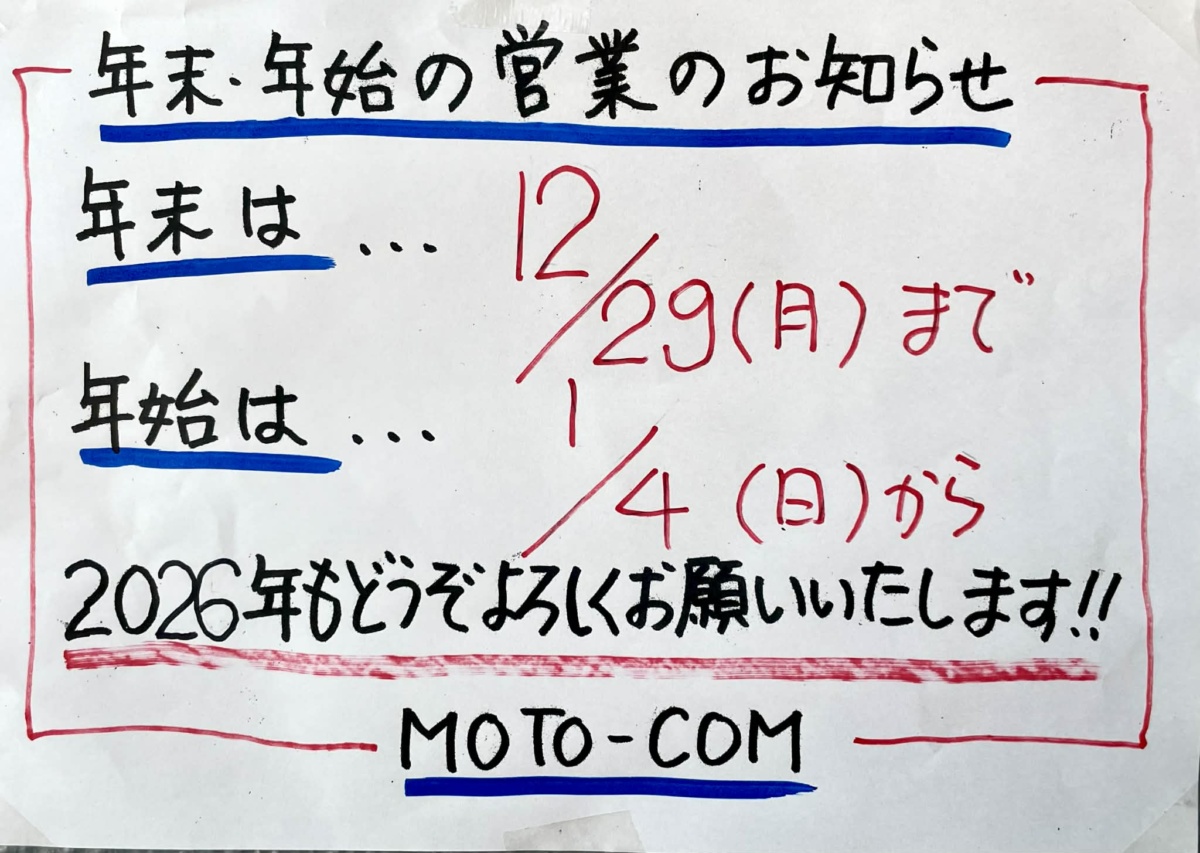 年末・年始の営業のお知らせ
年末は… 12/29(月)まで
年始は… 1/4(日)から
2026年もどうぞよろしくお願いいたします!!
MOTO-COM